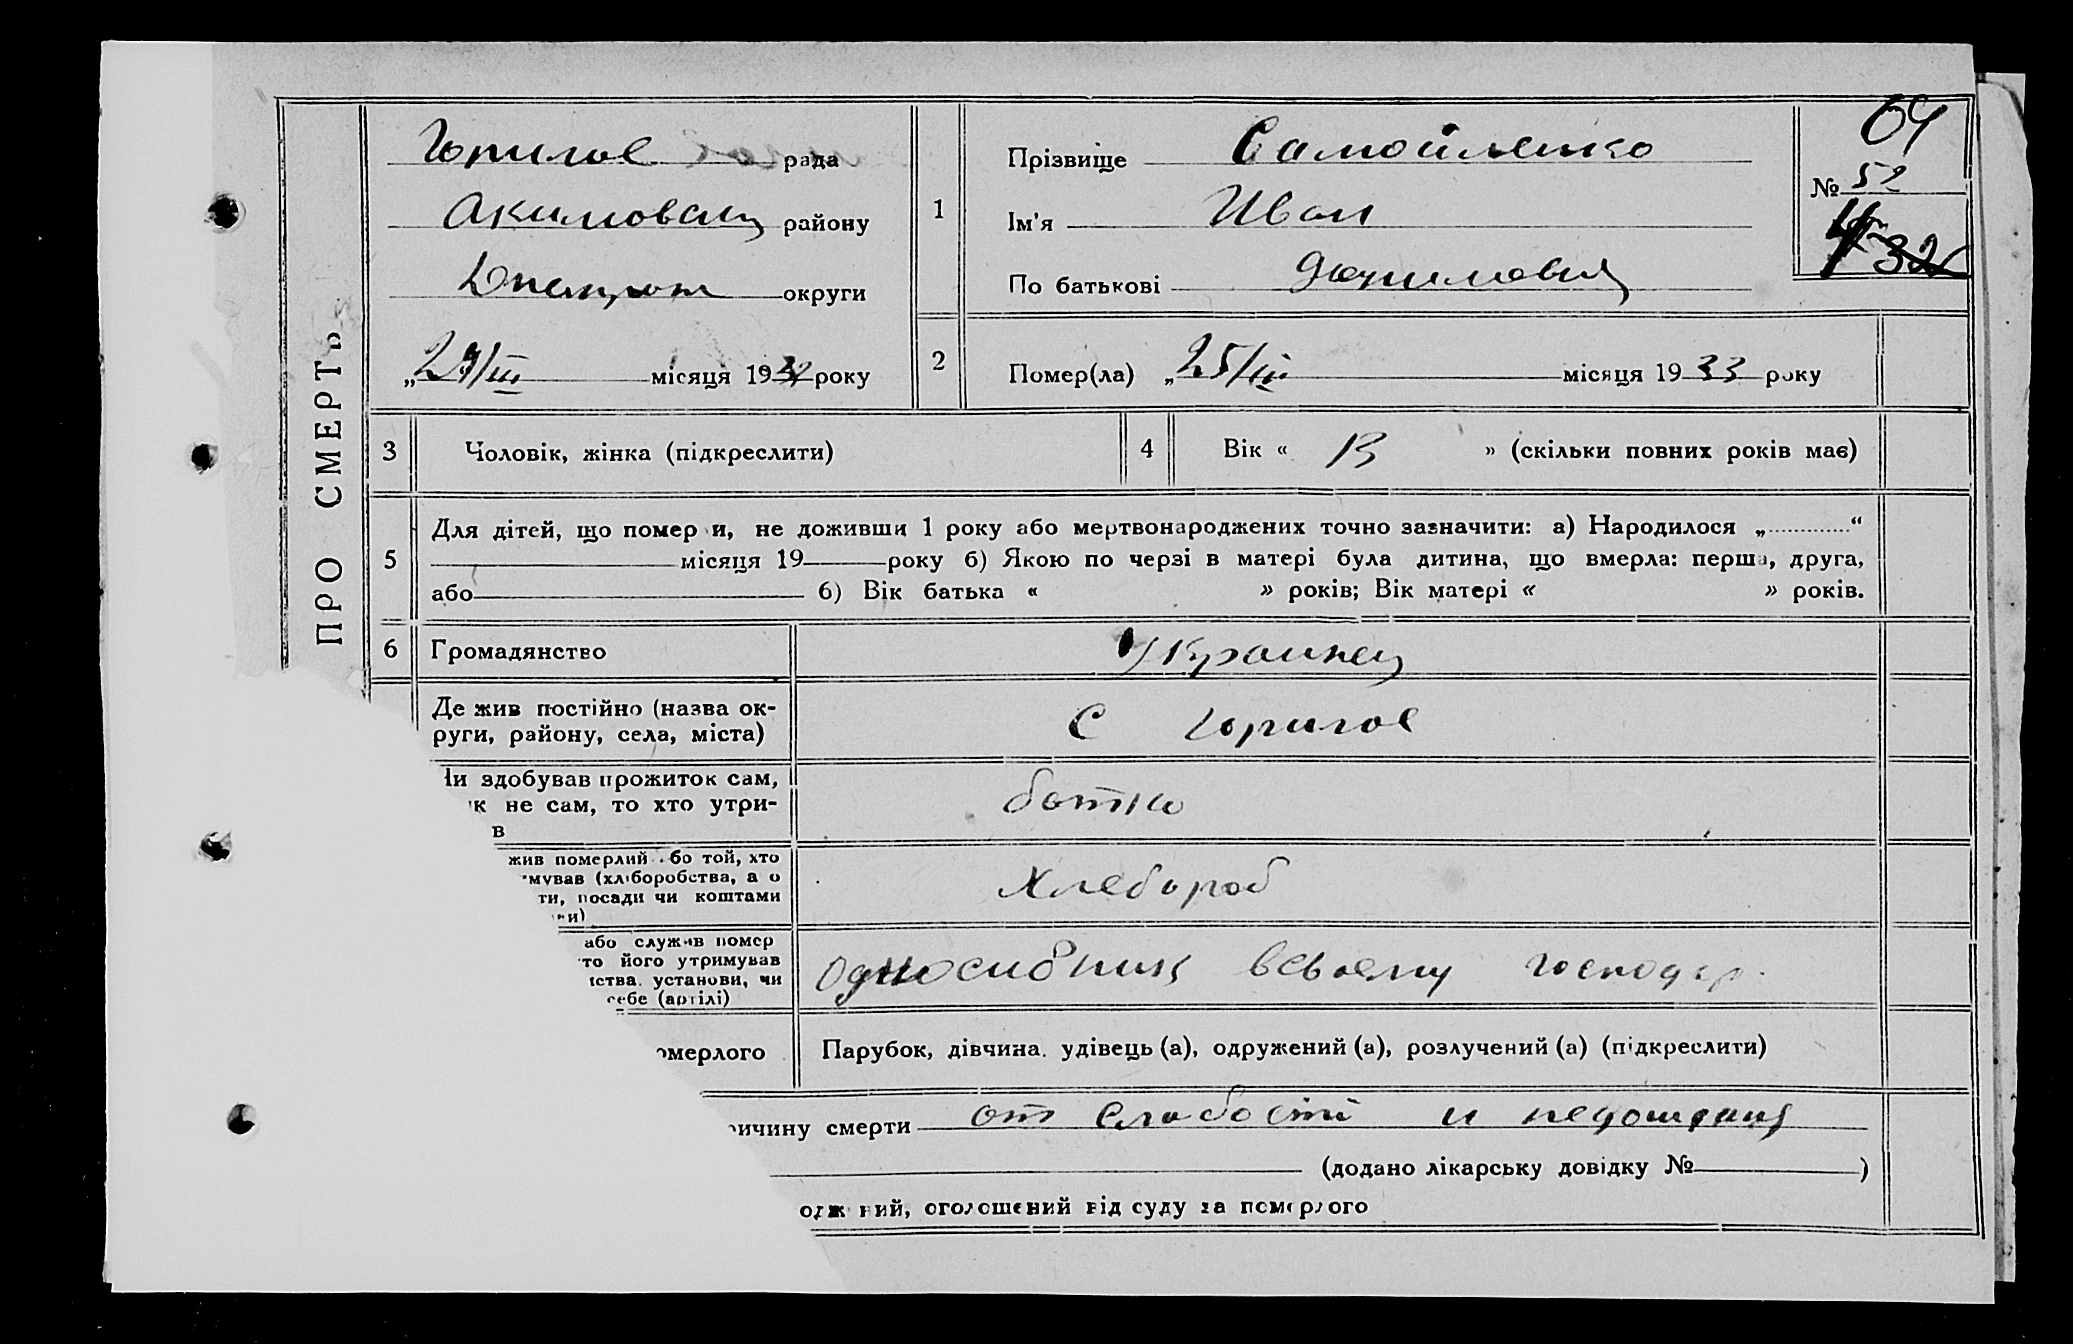 ПРО СМЕРТЬ
рада
Акимовськ району
округи
„29/III місяця 193 року
1
Прізвище Самойленко
Ім'я Иван
По батькові
64
№ 52
2
Помер(ла) „25/III місяця 1933 року
3
Чоловік, жінка (підкреслити)
4
Вік « 13 » (скільки повних років має)
5
Для дітей, що помер и, не доживши 1 року або мертвонароджених точно зазначити: а) Народилося „ “
місяця 19 року б) Якою по черзі в матері була дитина, що вмерла: перша, друга,
або б) Вік батька « » років; Вік матері « » років.
6
Громадянство
Украинец
Де жив постійно (назва ок-
руги, району, села, міста)
С
Чи здобував прожиток сам,
як не сам, то хто утри-
в
батько
жив померлий або той, хто
мував (хліборобства, а о
ти, посади чи коштами
ни)
Хлебороб
або служив помер
то його утримував
ства, установи, чи
себе (артілі)
Односибник всвоему господар
омерлого
Парубок, дівчина, удівець (а), одружений (а), розлучений (а) (підкреслити)
ричину смерти от слабости и недоедания
(додано лікарську довідку № )
одж ний, оголошений від суду за померлого